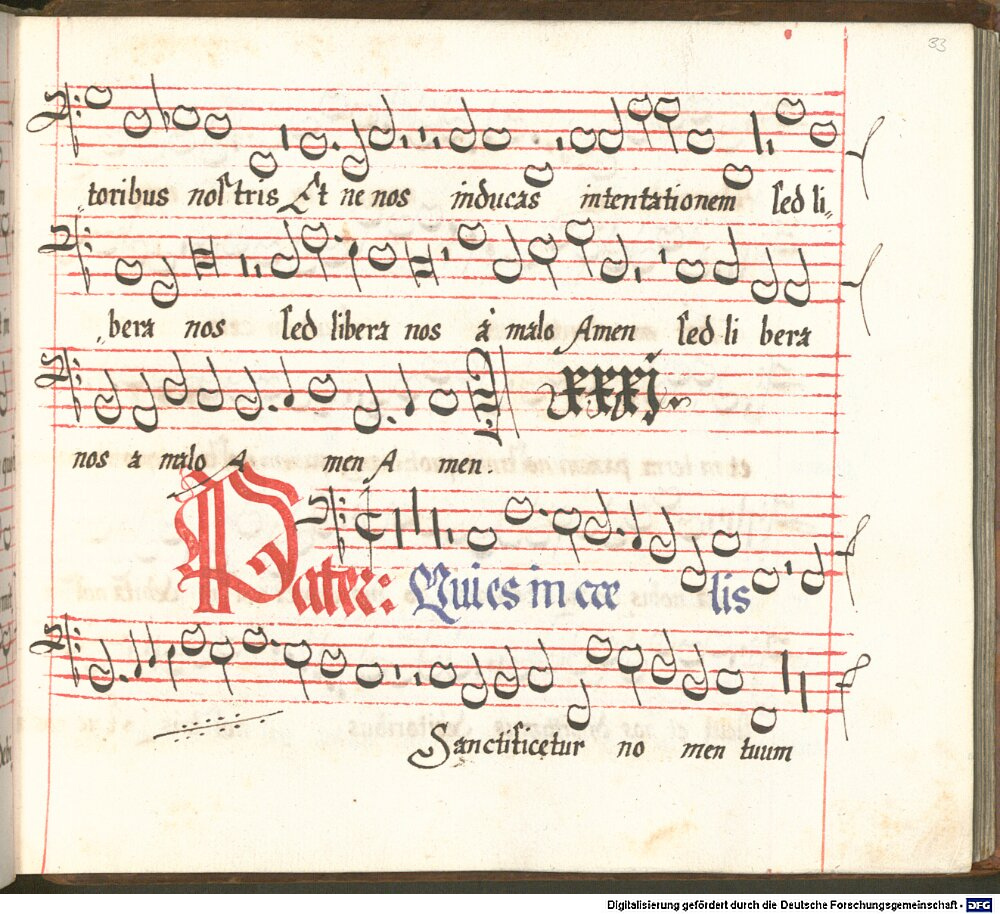 33
„toribus nostris Et ne nos inducas intentationem sed li„
„bera nos sed libera nos à malo Amen sed li bera
nos a malo A men A men.
xxxj.
Pater: Qui es in cæ lis
Sanctificetur no men tuum
Digitalisierung gefördert durch die Deutsche Forschungsgemeinschaft - DFG